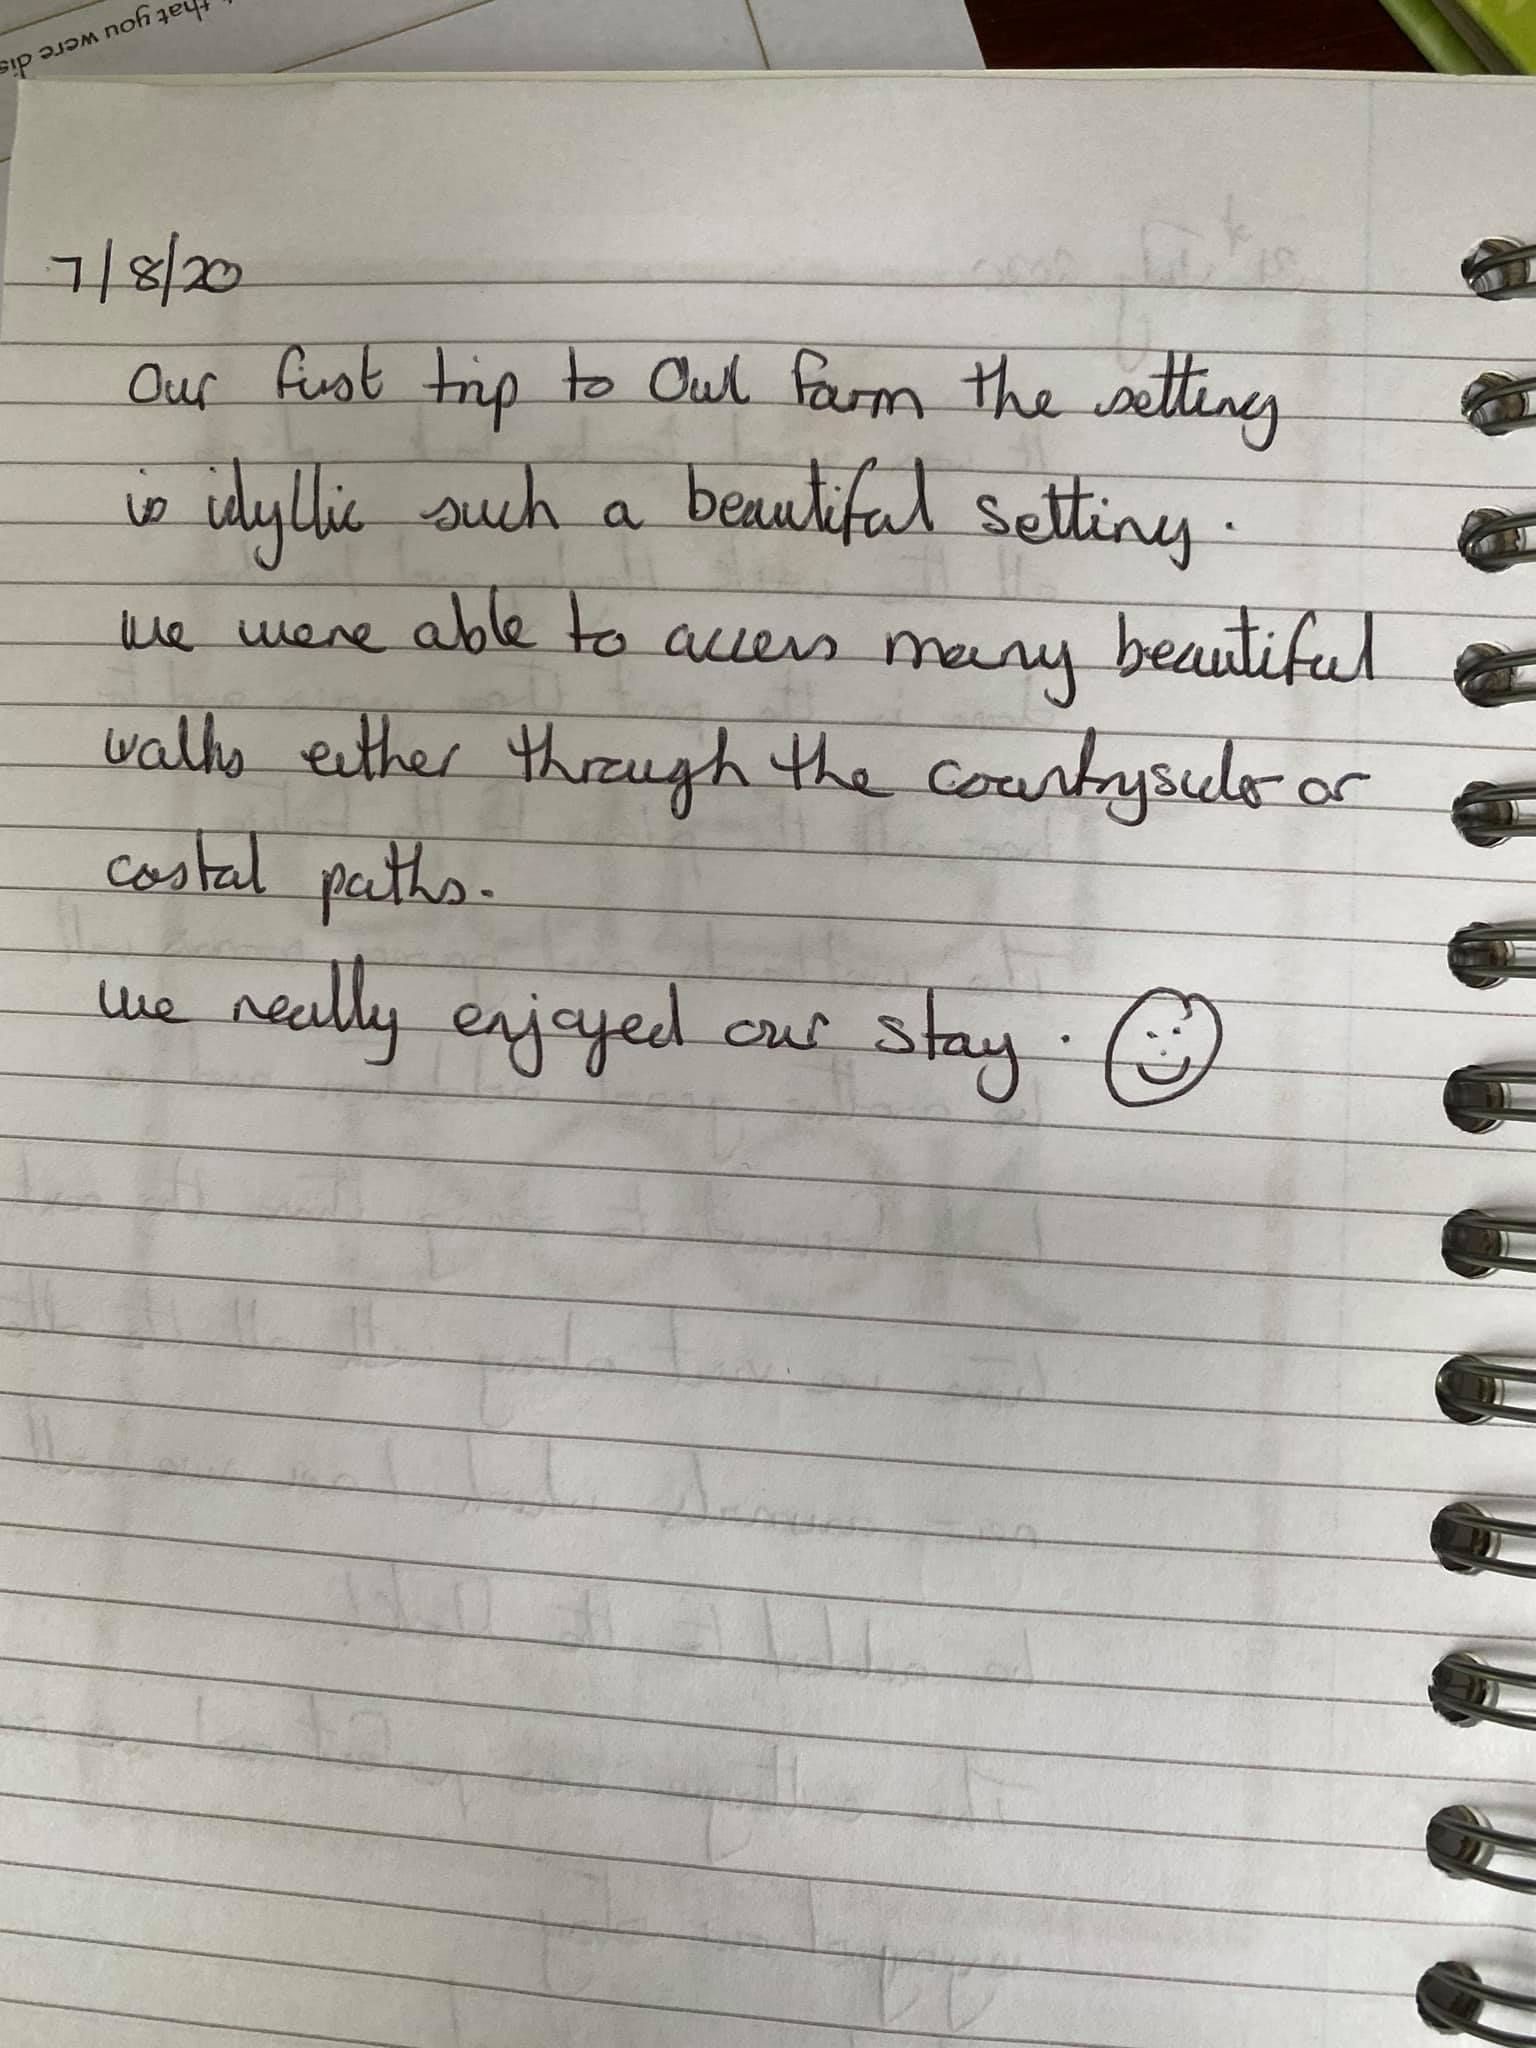 that you were dis
7/8/20
Our first trip to Owl Farm the setting
is idyllic such a beautiful setting.
we were able to access many beautiful
walks either through the countryside or
costal paths.
we really enjoyed our stay.